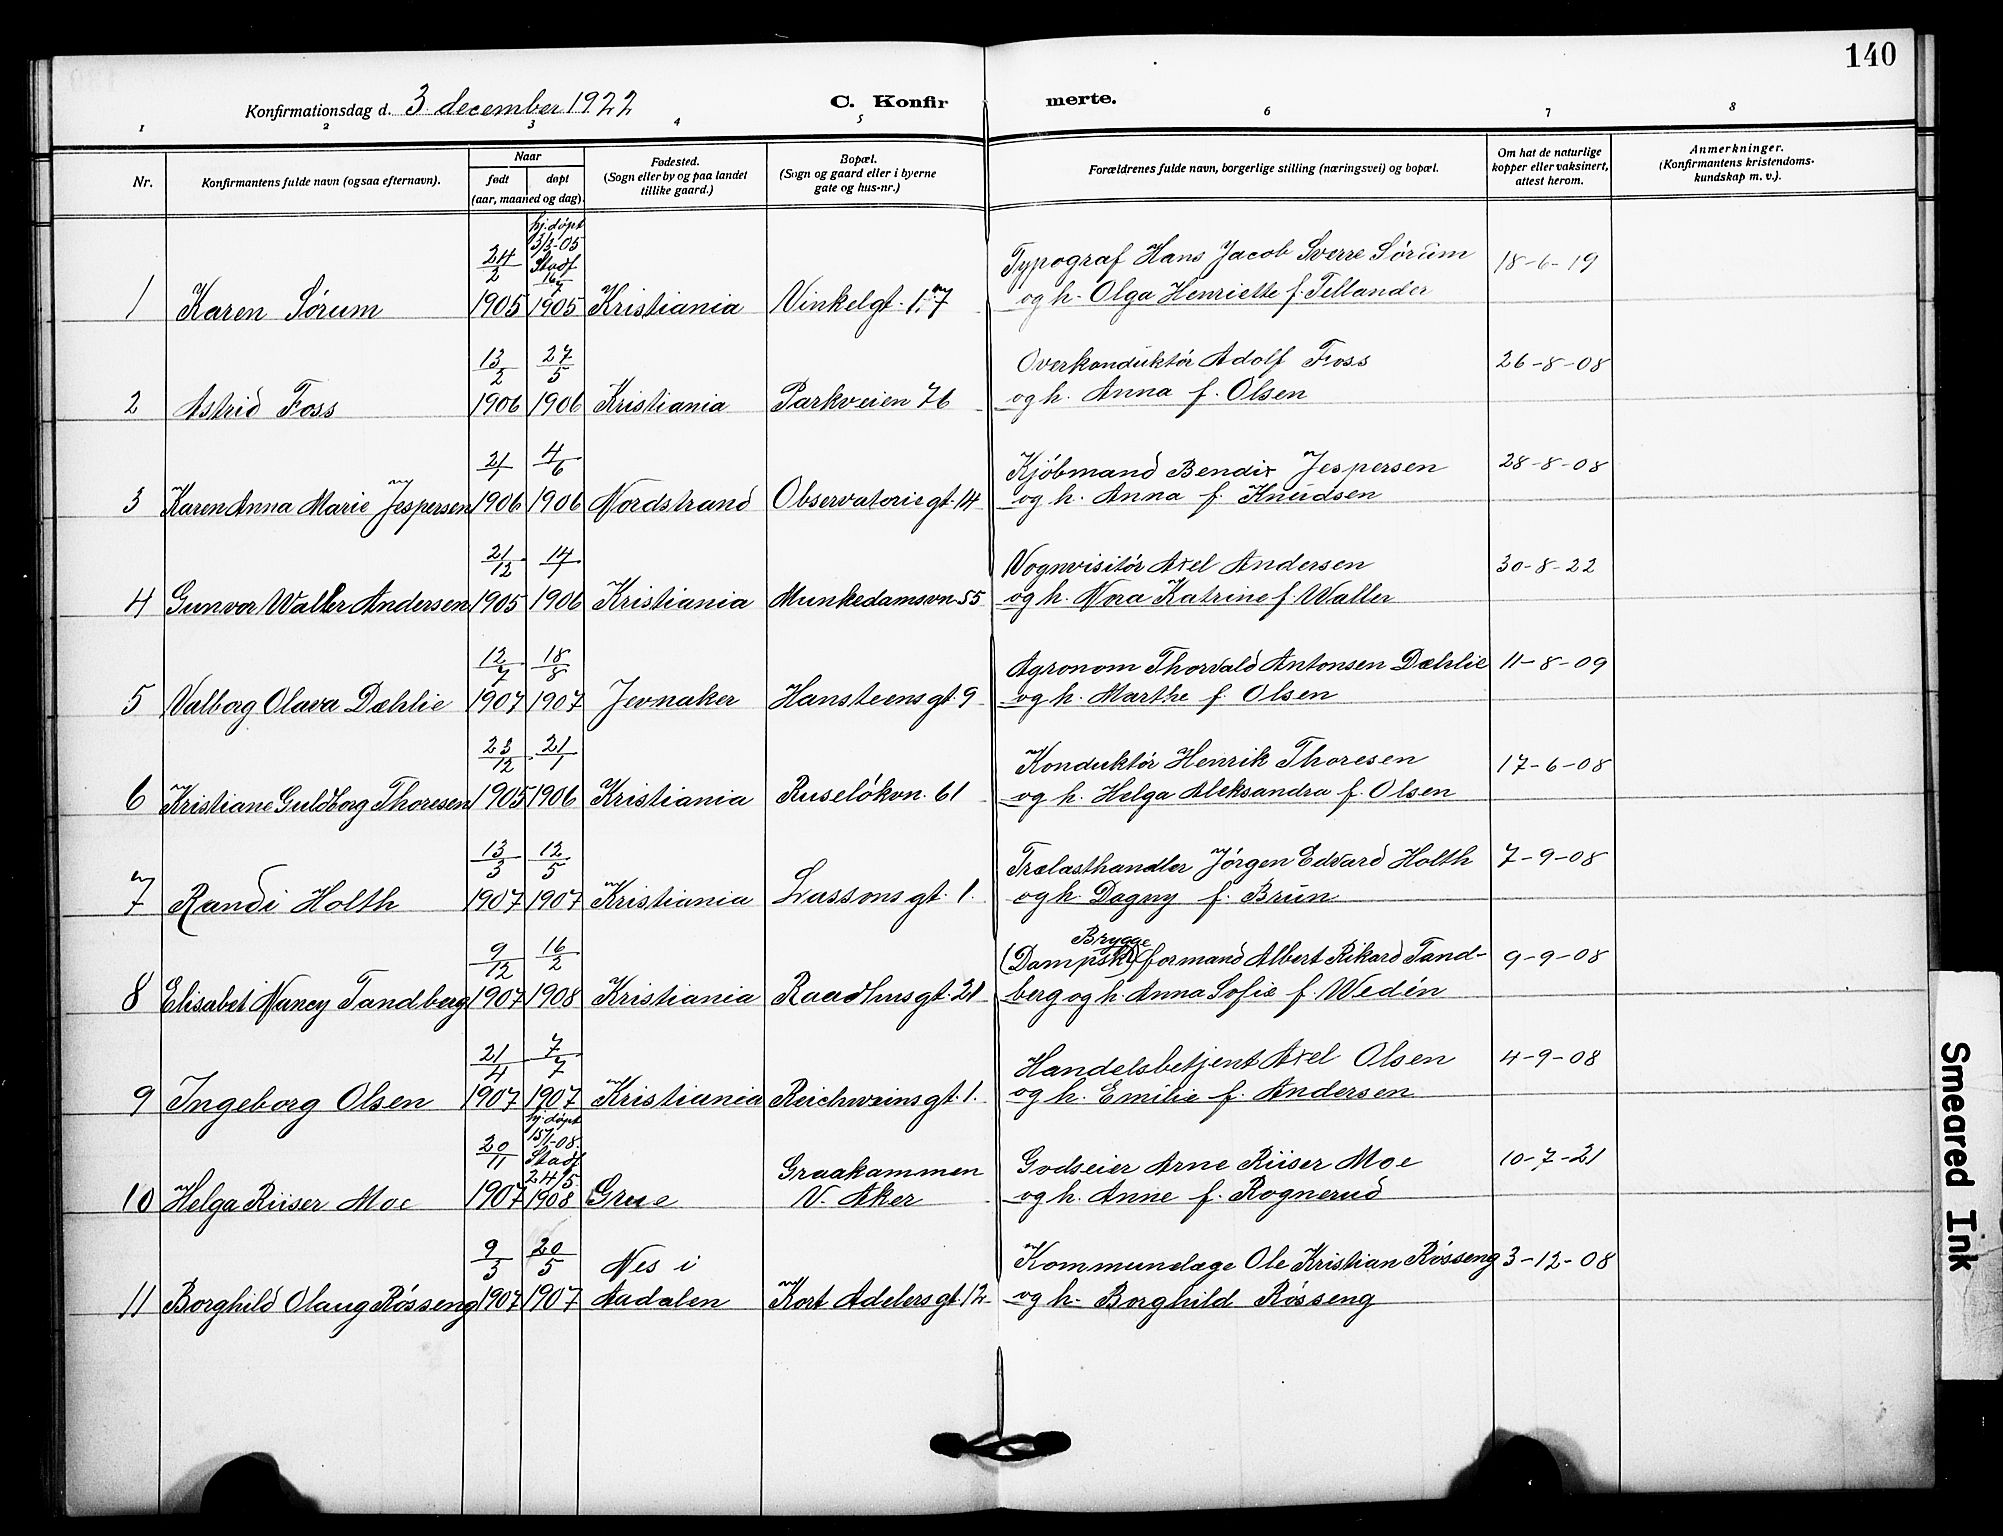 140
Konfirmationsdag d. 3 december 1922
C. Konfirmerte.
1 2 3 4 5 6 7 8
Nr.
Konfirmantens fulde navn (ogsaa efternavn).
Naar
født
døpt
(aar, maaned og dag).
Fødested.
(Sogn eller by og paa landet
tillike gaard.)
Bopæl.
(Sogn og gaard eller i byerne
gate og hus-nr.)
Forældrenes fulde navn, borgerlige stilling (næringsvei) og bopæl.
Om hat de naturlige
kopper eller vaksinert,
attest herom.
Anmerkninger.
(Konfirmantens kristendoms-
kundskap m. v.).
1 Karen Sørum 24/2 1905 hj. døpt 3/3-05 Stadf 16/7 1905 Kristiania Vinkelgt. 17
Typograf Hans Jacob Sverre Sørum 18-6-19
og h. Olga Henriette f. Tellander
2 Astrid Foss 13/2 1906 27/5 1906 Kristiania Parkveien 76
Overkonduktör Adolf Foss 26-8-08
og h. Anna f. Olsen
3 Karen Anna Marie Jespersen 21/1 1906 4/6 1906 Nordstrand Observatoriegt. 14
Kjöbmand Bendix Jespersen 28-8-08
og h. Anna f. Knudsen
4 Gunvor Waller Andersen 21/12 1905 14/1 1906 Kristiania Munkedamsvn 55
Vognvisitör Axel Andersen 30-8-22
og h. Nora Katrine f. Waller
5 Valborg Olava Dæhlie 12/7 1907 18/8 1907 Jevnaker Hansteensgt. 9
Agronom Thorvald Antonsen Dæhlie 11-8-09
og h. Marthe f. Olsen
6 Kristiane Guldborg Thoresen 23/12 1905 21/1 1906 Kristiania Ruselökvn. 61
Konduktör Henrik Thoresen 17-6-08
og h. Helga Aleksandra f. Olsen
7 Randi Holth 13/3 1907 12/5 1907 Kristiania Lassons gt. 1.
Trælasthandler Jörgen Edvard Holth 7-9-08
og h. Dagny f. Brun
8 Elisabet Nancy Tandberg 9/12 1907 16/2 1908 Kristiania Raadhusgt. 21
Brygge
(Dampsk) formand Albert Rikard Tand- 9-9-08
berg og h. Anna Sofie f. Wedén
9 Ingeborg Olsen 21/4 1907 7/7 1907 Kristiania Reichweinsgt. 1.
Handelsbetjent Axel Olsen 4-9-08
og h. Emilie f. Andersen
10 Helga Riiser Moe 20/11 1907 hj. døpt 15/1-08. Stadf 24/5 1908 Grue Graakammen V. Aker
Godseier Arne Riiser Moe 10-7-21
og h. Anne f. Rognerud
11 Borghild Olaug Rösseng 9/3 1907 20/5 1907 Nes i Aadalen Kort Adelersgt. 12
Kommunelæge Ole Kristian Rösseng 3-12-08
og h. Borghild Rösseng
Smeared Ink